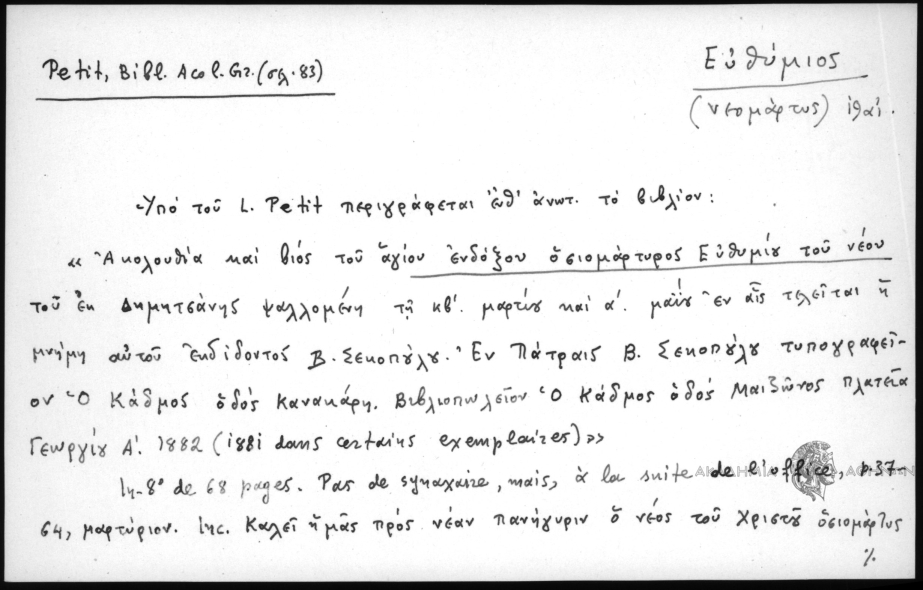 Petit, Bibl. Acol. Gr. (σελ. 83)
Εὐθύμιος
(νεομάρτυς)
Ὑπό τοῦ L. Petit περιγράφεται ἐνθ' ἀνωτ. τό βιβλίον:
«Ἀκολουθία καί βιός τοῦ ἁγίου ἐνδόξου ὁσιομάρτυρος Εὐθυμίου τοῦ νέου
τοῦ ἐκ Δημητσάνης ψαλλομένη τῇ κβ'. μαρτίου καί α'. μαΐου ἐν αἷς τελεῖται ἡ
μνήμη αὐτοῦ ἐκδίδοντος Β. Σεκοπούλου. Ἐν Πάτραις Β. Σεκοπούλου τυπογραφεῖ-
ον Ὁ Κάδμος ὁδός Κανακάρη. Βιβλιοπωλεῖον Ὁ Κάδμος ὁδός Μαιζῶνος πλατεῖα
Γεωργίου Α'. 1882 (1881 dans certains exemplaires)»
In-8° de 68 pages. Pas de synaxaire, mais, à la suite de l'office, p. 37-
64, μαρτύριον. Inc. Καλεῖ ἡμᾶς πρός νέαν πανήγυριν ὁ νέος τοῦ Χριστοῦ ὁσιομάρτυς
%
ΑΚΑΔΗΜΙΑ ΑΘΗΝΩΝ